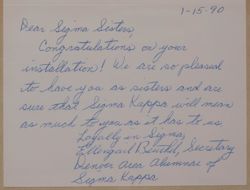 1-15-90
Dear Sigma Sisters,
Congratulations on your
installation! We are so pleased
to have you as sisters and are
sure that Sigma Kappa will mean
as much to you as it has to us
Loyally in Sigma,
Secretary
Denver Area Alumnae of
Sigma Kappa